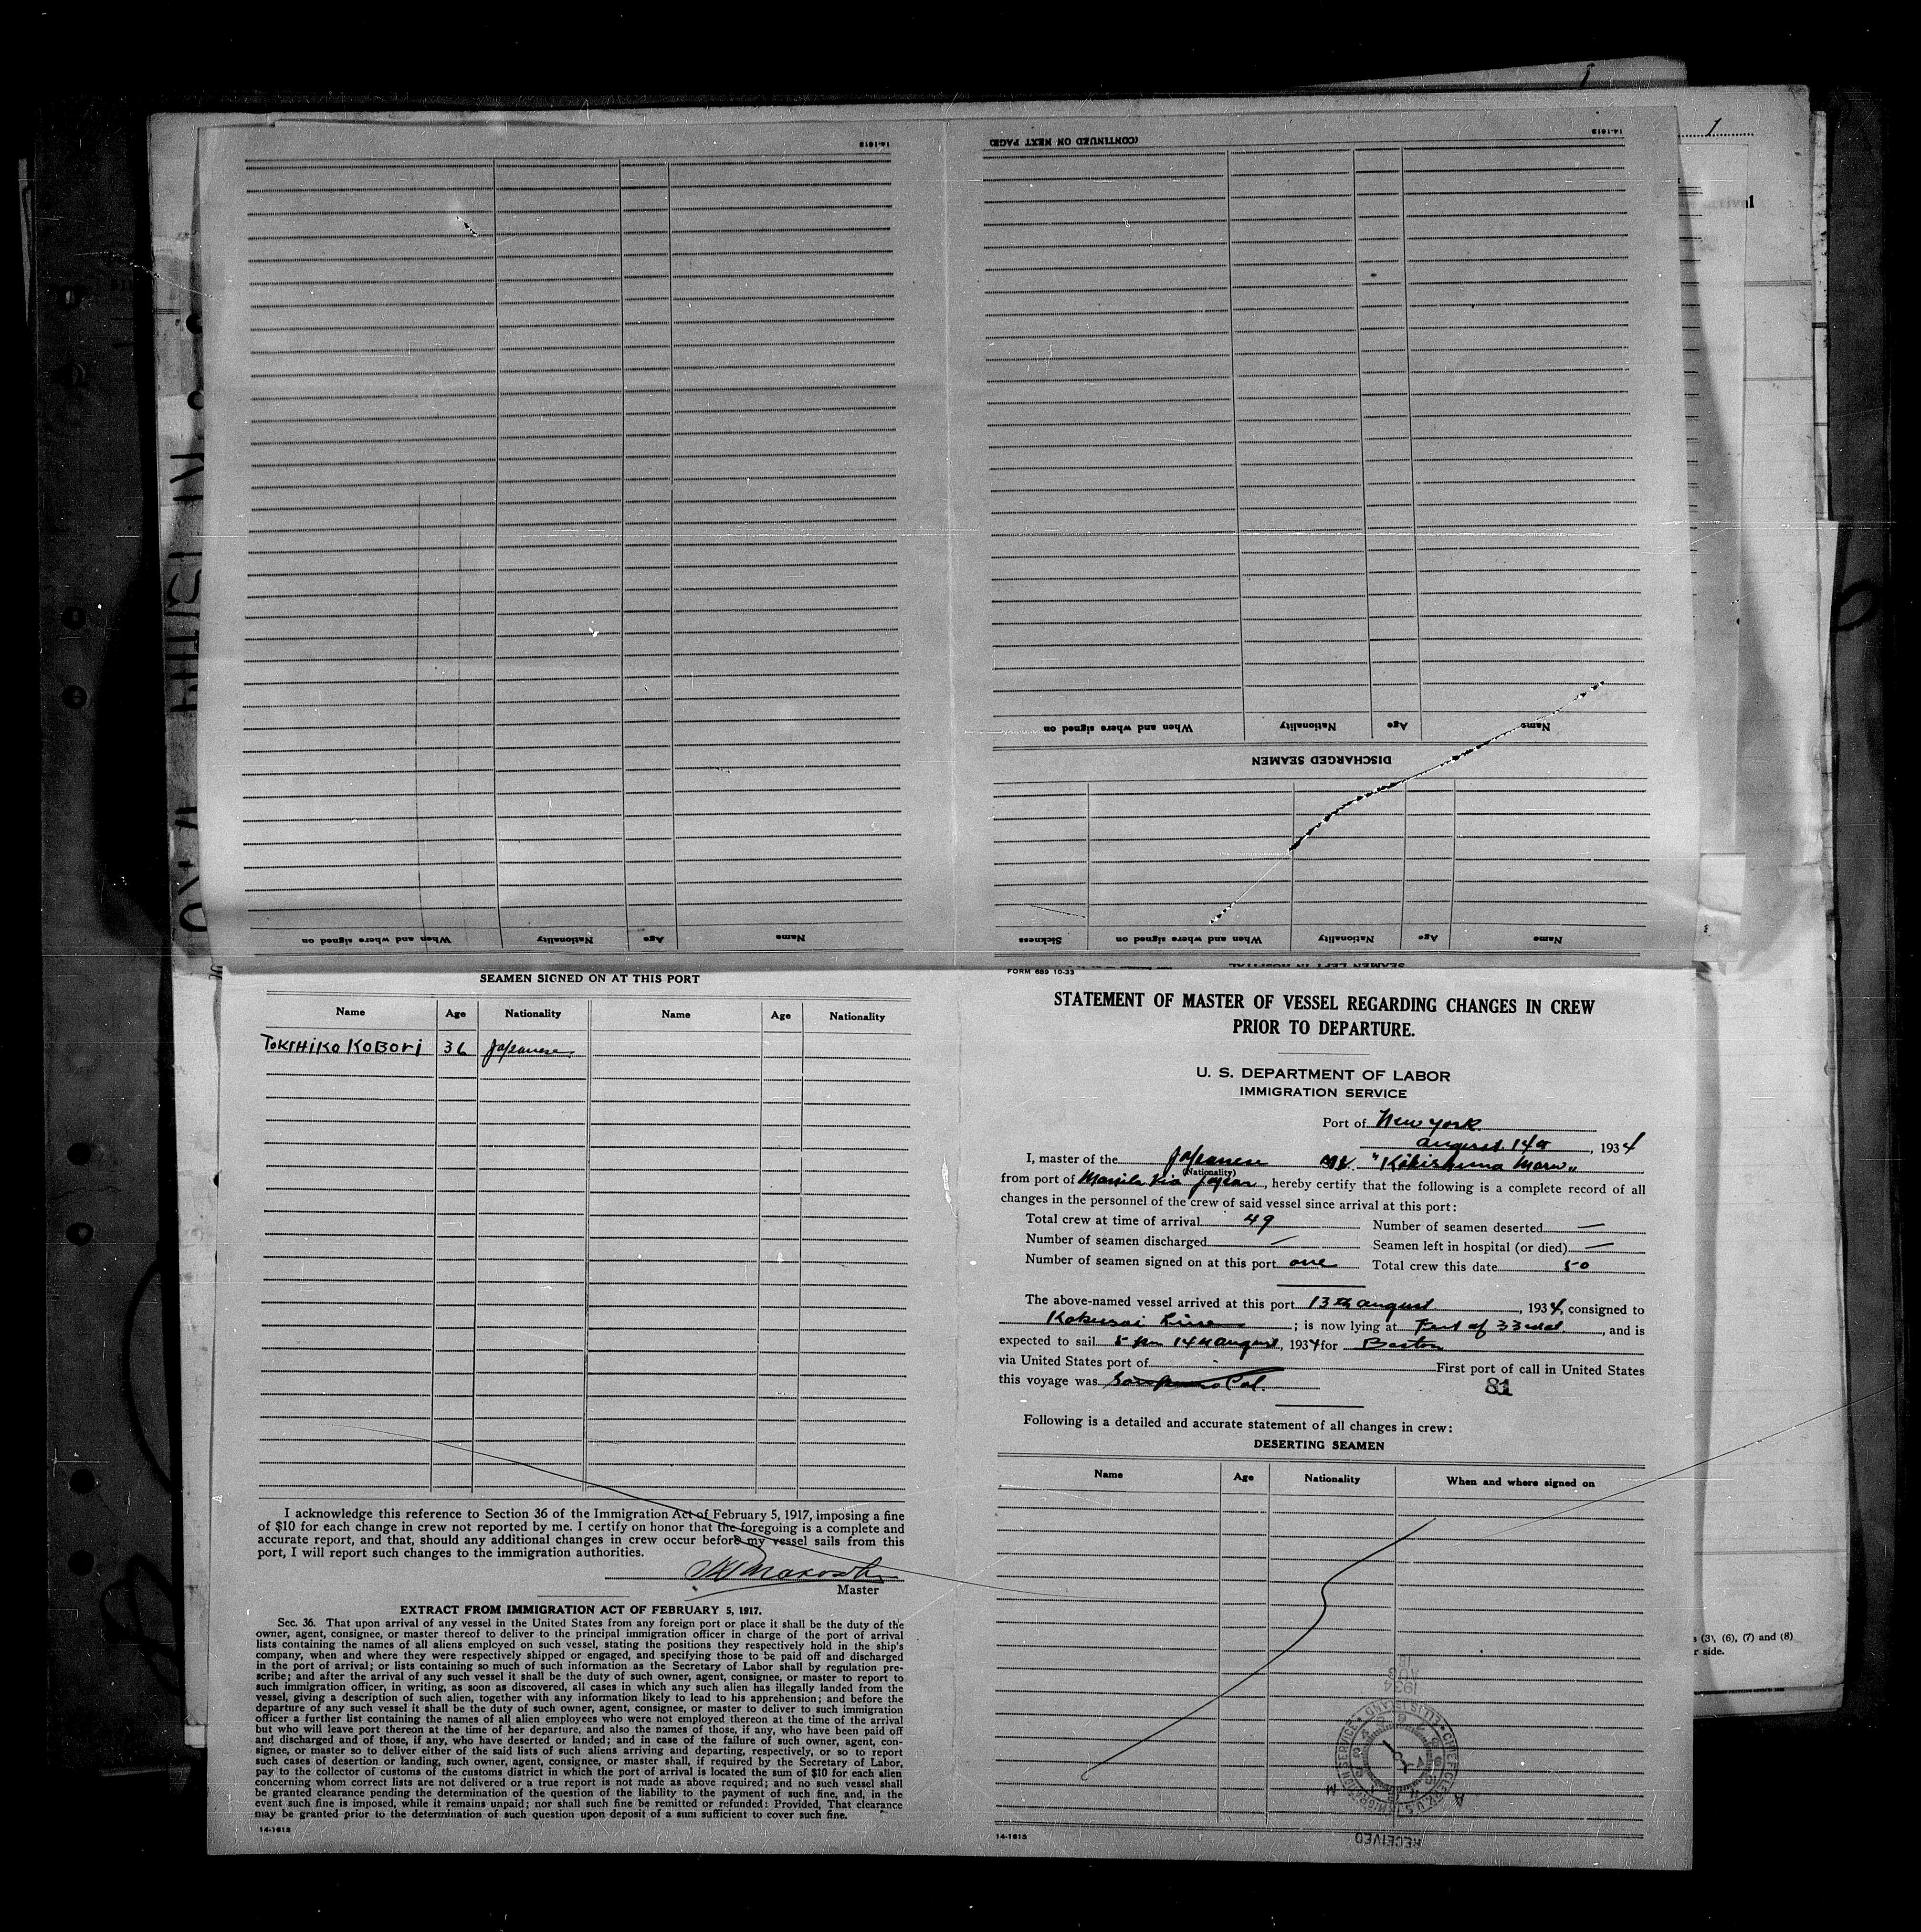 1
14-1613
14-1613
(CONTINUED ON NEXT PAGE)
Name Age Nationality When and where signed on
DISCHARGED SEAMEN
Name Age Nationality When and where signed on Sickness
Name Age Nationality When and where signed on
SEAMEN LEFT IN HOSPITAL
SEAMEN SIGNED ON AT THIS PORT
Name Age Nationality Name Age Nationality
TOKIHIKO KOBORI 36 Japanese
I acknowledge this reference to Section 36 of the Immigration Act of February 5, 1917, imposing a fine
of $10 for each change in crew not reported by me. I certify on honor that the foregoing is a complete and
accurate report, and that, should any additional changes in crew occur before my vessel sails from this
port, I will report such changes to the immigration authorities.
Master
EXTRACT FROM IMMIGRATION ACT OF FEBRUARY 5, 1917.
Sec. 36. That upon arrival of any vessel in the United States from any foreign port or place it shall be the duty of the
owner, agent, consignee, or master thereof to deliver to the principal immigration officer in charge of the port of arrival
lists containing the names of all aliens employed on such vessel, stating the positions they respectively hold in the ship's
company, when and where they were respectively shipped or engaged, and specifying those to be paid off and discharged
in the port of arrival; or lists containing so much of such information as the Secretary of Labor shall by regulation pre-
scribe; and after the arrival of any such vessel it shall be the duty of such owner, agent, consignee, or master to report to
such immigration officer, in writing, as soon as discovered, all cases in which any such alien has illegally landed from the
vessel, giving a description of such alien, together with any information likely to lead to his apprehension; and before the
departure of any such vessel it shall be the duty of such owner, agent, consignee, or master to deliver to such immigration
officer a further list containing the names of all alien employees who were not employed thereon at the time of the arrival
but who will leave port thereon at the time of her departure, and also the names of those, if any, who have been paid off
and discharged and of those, if any, who have deserted or landed; and in case of the failure of such owner, agent, con-
signee, or master so to deliver either of the said lists of such aliens arriving and departing, respectively, or so to report
such cases of desertion or landing, such owner, agent, consignee, or master shall, if required by the Secretary of Labor,
pay to the collector of customs of the customs district in which the port of arrival is located the sum of $10 for each alien
concerning whom correct lists are not delivered or a true report is not made as above required; and no such vessel shall
be granted clearance pending the determination of the question of the liability to the payment of such fine, and, in the
event such fine is imposed, while it remains unpaid; nor shall such fine be remitted or refunded: Provided, That clearance
may be granted prior to the determination of such question upon deposit of a sum sufficient to cover such fine.
14-1613
FORM 689 10-33
STATEMENT OF MASTER OF VESSEL REGARDING CHANGES IN CREW
PRIOR TO DEPARTURE.
U. S. DEPARTMENT OF LABOR
IMMIGRATION SERVICE
Port of New York
August 14th, 1934
I, master of the Japanese M.V. "Kirishima Maru"
(Nationality)
from port of Manila via Japan, hereby certify that the following is a complete record of all
changes in the personnel of the crew of said vessel since arrival at this port:
Total crew at time of arrival 49 Number of seamen deserted —
Number of seamen discharged — Seamen left in hospital (or died) —
Number of seamen signed on at this port one Total crew this date 50
The above-named vessel arrived at this port 13th August, 1934, consigned to
Kokusai Line; is now lying at Foot of 33rd st., and is
expected to sail 5 pm 14th August, 1934 for Boston
via United States port of First port of call in United States
this voyage was San Pedro Cal.
81
Following is a detailed and accurate statement of all changes in crew:
DESERTING SEAMEN
Name Age Nationality When and where signed on
1934
AUG
RECEIVED
14-1613
s (3), (6), (7) and (8)
r side.